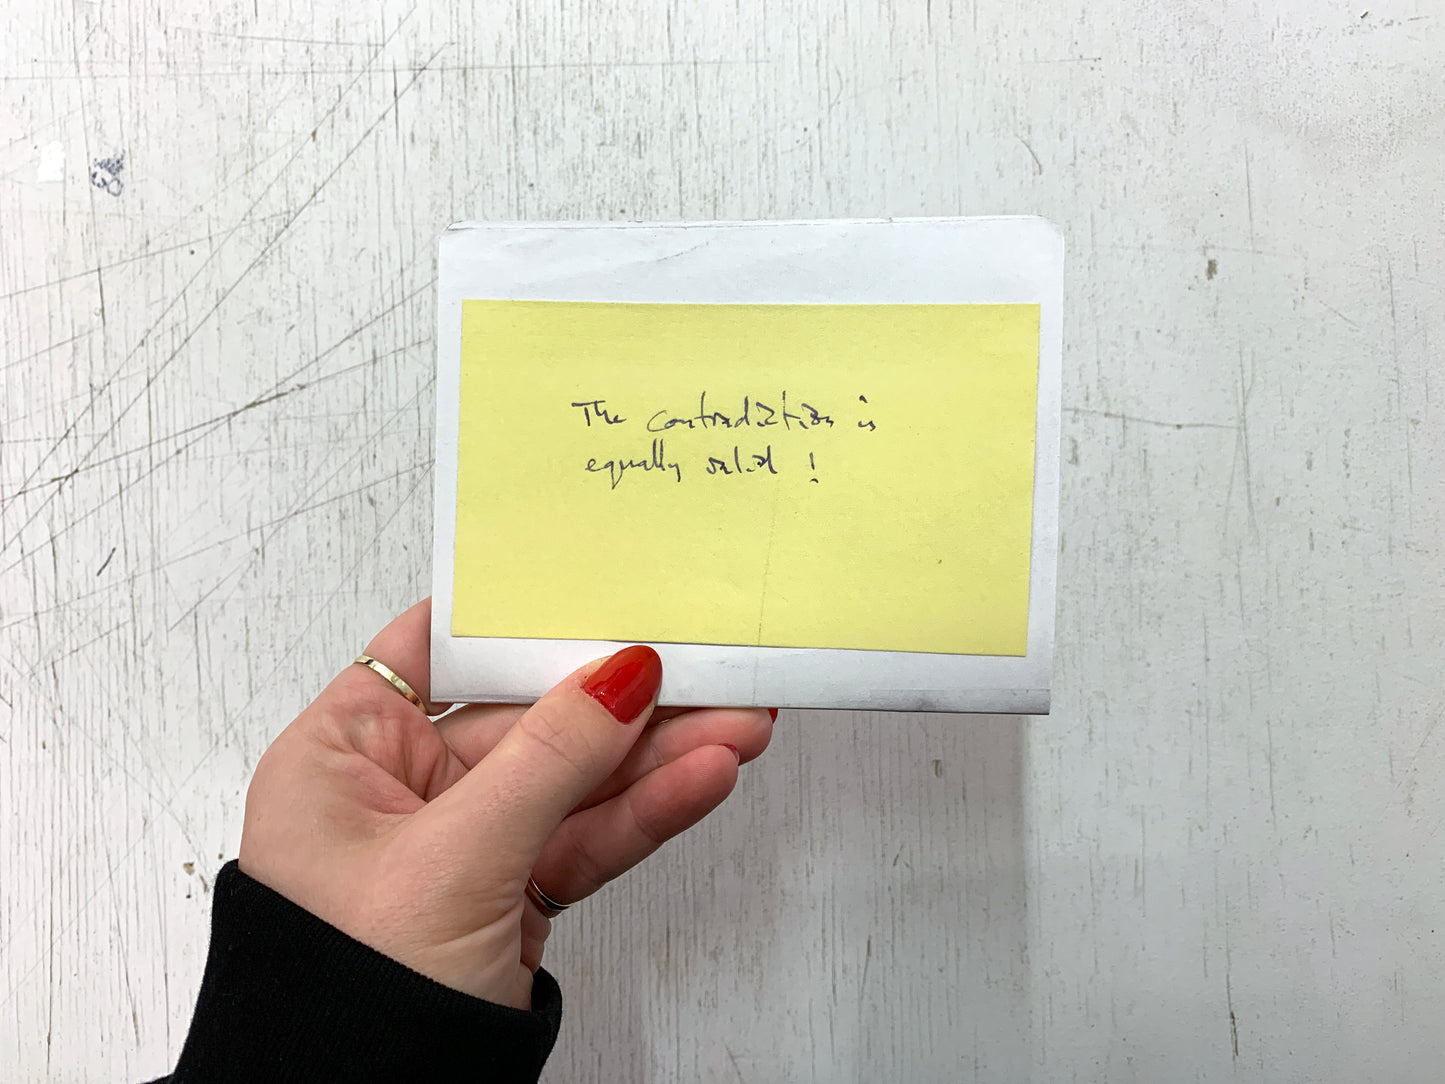 The contradiction is
equally valid !